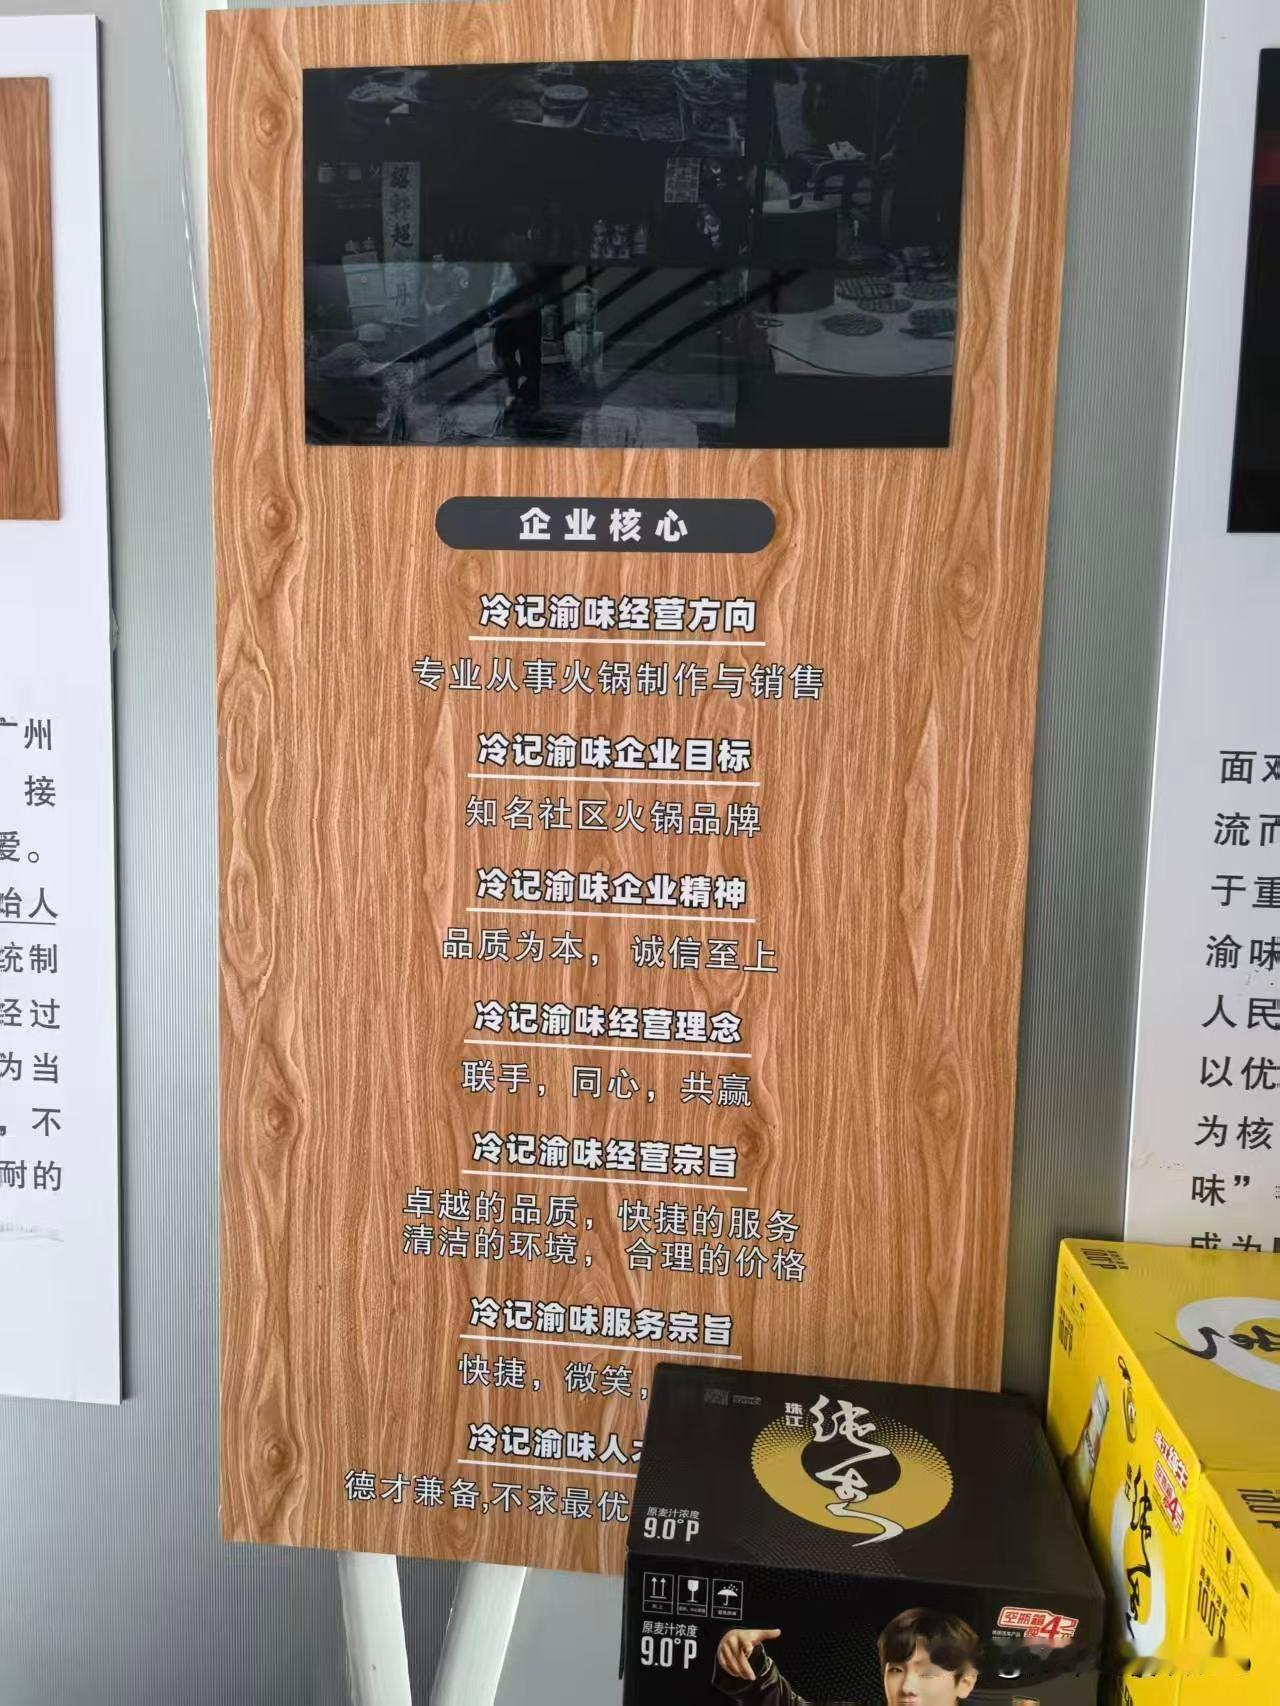 企业核心
冷记渝味经营方向
专业从事火锅制作与销售
冷记渝味企业目标
知名社区火锅品牌
冷记渝味企业精神
品质为本，诚信至上
冷记渝味经营理念
联手，同心，共赢
冷记渝味经营宗旨
卓越的品质，快捷的服务
清洁的环境，合理的价格
冷记渝味服务宗旨
快捷，微笑，
冷记渝味人
德才兼备,不求最优
广州
接
爱。
始人
统制
经过
为当
，不
耐的
面对
流而
于重
渝味
人民
以优
为核
味”
成为
珠江
纯生
原麦汁浓度
9.0°P
原麦汁浓度
9.0°P
10.0°P
珠江
纯生
10.0°P